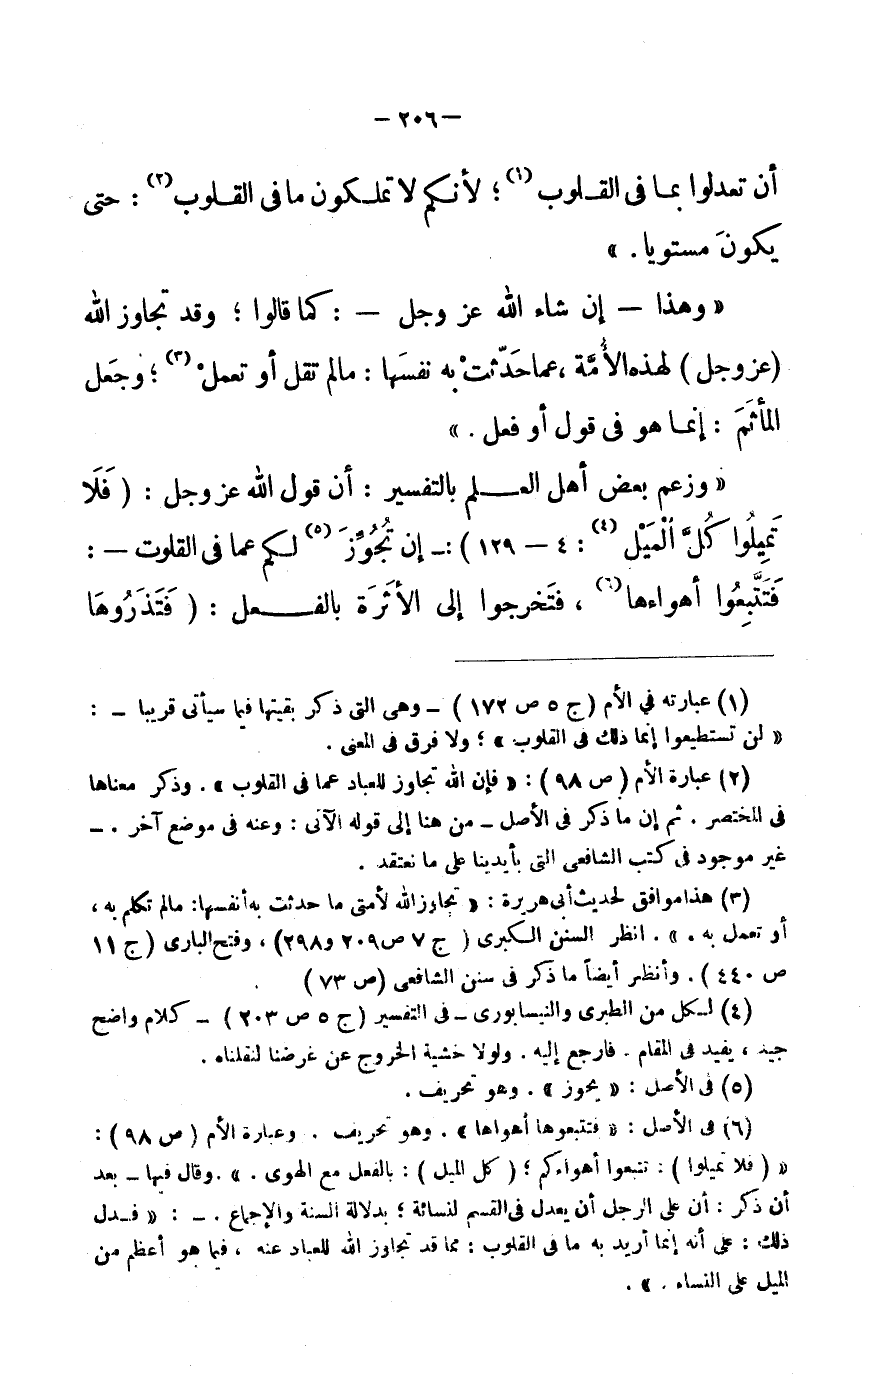 — ٢٠٦ —
أن تعدلوا بما فى القلوب (١) ؛ لأنكم لا تملكون ما فى القلوب (٢) : حتى
يكونَ مستويا . »
« وهذا — إن شاء الله عز وجل — : كما قالوا ؛ وقد تجاوز الله
(عز وجل ) لهذه الأُمَّة ، عما حَدّثتْ به نفسَها : مالم تقل أو تعملْ (٣) ؛ وجَعل
المأثَمَ : إنما هو فى قول أو فعل . »
« وزعم بعض أهل العلم بالتفسير : أن قول الله عز وجل : ( فَلَا
تَمِيلُوا كُلَّ الْمَيْل (٤) : ٤ — ١٢٩ ) :ـ إن تُجُوِّزَ (٥) لكم عما فى القلوت — :
فَتَتَّبِعُوا أهواءها (٦) ، فتَخرجوا إلى الأثَرَة بالفعل : ( فَتَذَرُوهَا
(١) عبارته في الأم ( ج ٥ ص ١٧٢ ) ـ وهى التى ذكر بقيتها فيما سيأتى قريبا ـ :
« لن تستطيعوا إنما ذلك فى القلوب » ؛ ولا فرق فى المعنى .
(٢) عبارة الأم ( ص ٩٨ ) : « فإن الله تجاوز للعباد عما فى القلوب » . وذكر معناها
فى المختصر . ثم إن ما ذكر فى الأصل ـ من هنا إلى قوله الآتى : وعنه فى موضع آخر . ـ
غير موجود فى كتب الشافعى التى بأيدينا على ما نعتقد .
(٣) هذا موافق لحديث أبى هريرة : « تجاوز الله لأمتى ما حدثت به أنفسها: مالم تكلم به ،
أو تعمل به . » . انظر السنن الكبرى ( ج ٧ ص ٢٠٩ و٢٩٨) ، وفتح البارى ( ج ١١
ص ٤٤٠ ) . وأنظر أيضاً ما ذكر فى سنن الشافعى (ص ٧٣ )
(٤) لكل من الطبرى والنيسابورى ـ فى التفسير ( ج ٥ ص ٢٠٣ ) ـ كلام واضح
جيد ، يفيد فى المقام . فارجع إليه . ولولا خشية الخروج عن غرضنا لنقلناه .
(٥) فى الأصل : « يحوز » . وهو تحريف .
(٦) فى الأصل : « فتتبعوها أهواها » . وهو تحريف . وعبارة الأم ( ص ٩٨ ) :
« ( فلا تميلوا ) : تتبعوا أهواءكم ؛ ( كل الميل ) : بالفعل مع الهوى . » .وقال فيها ـ بعد
أن ذكر : أن على الرجل أن يعدل فى القسم لنسائة ؛ بدلالة السنة والإجماع . ـ : « فدل
ذلك : على أنه إنما أريد به ما فى القلوب : مما قد تجاوز الله للعباد عنه ، فيما هو أعظم من
الميل على النساء . » .